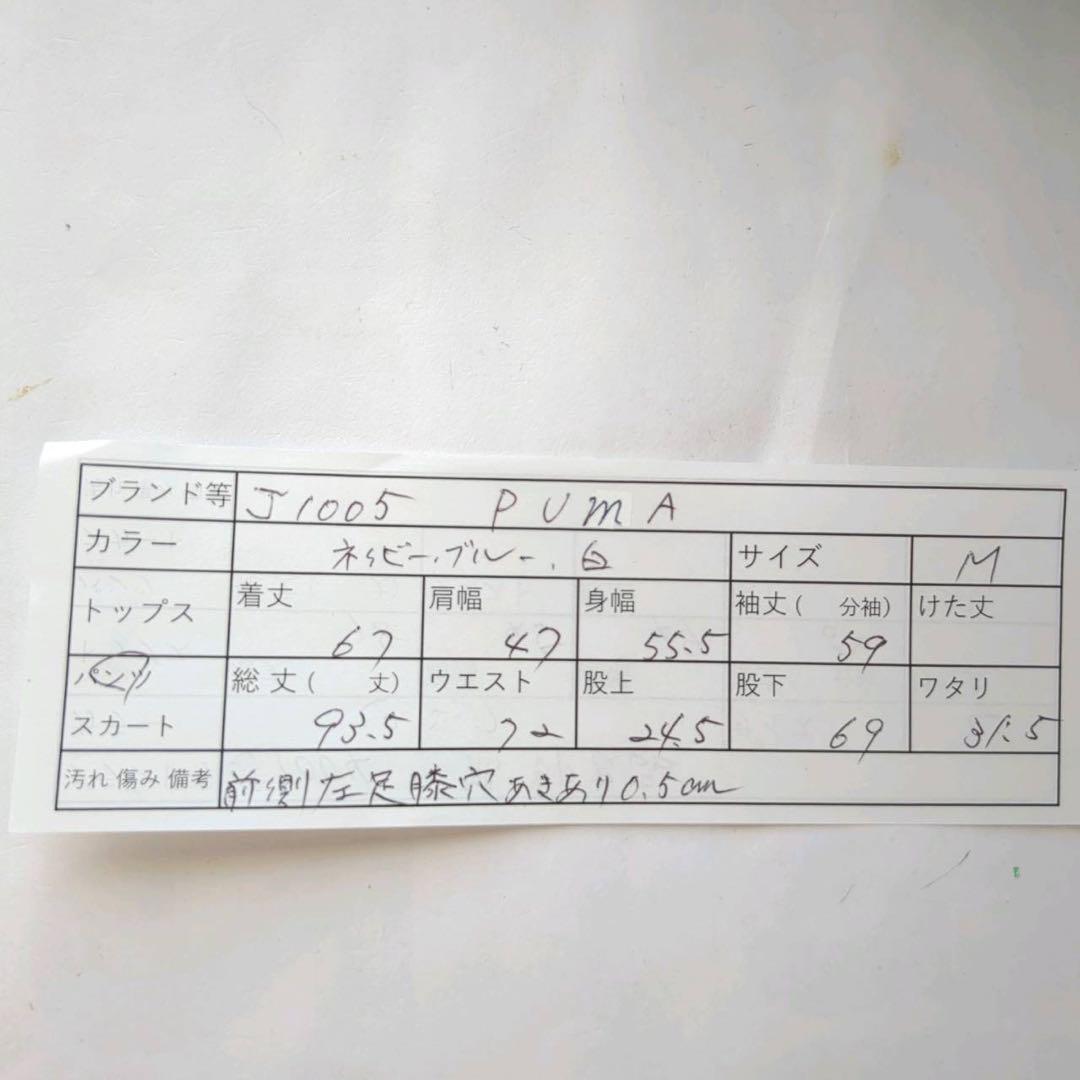 ブランド等 J1005 PUMA
カラー ネイビー.ブルー.白 サイズ M
トップス 着丈 67 肩幅 47 身幅 55.5 袖丈( 分袖) 59 けた丈
パンツ 総丈( 丈) ウエスト 股上 股下 ワタリ
スカート 93.5 72 24.5 69 31.5
汚れ 傷み 備考 前側左足膝穴あきあり0.5cm